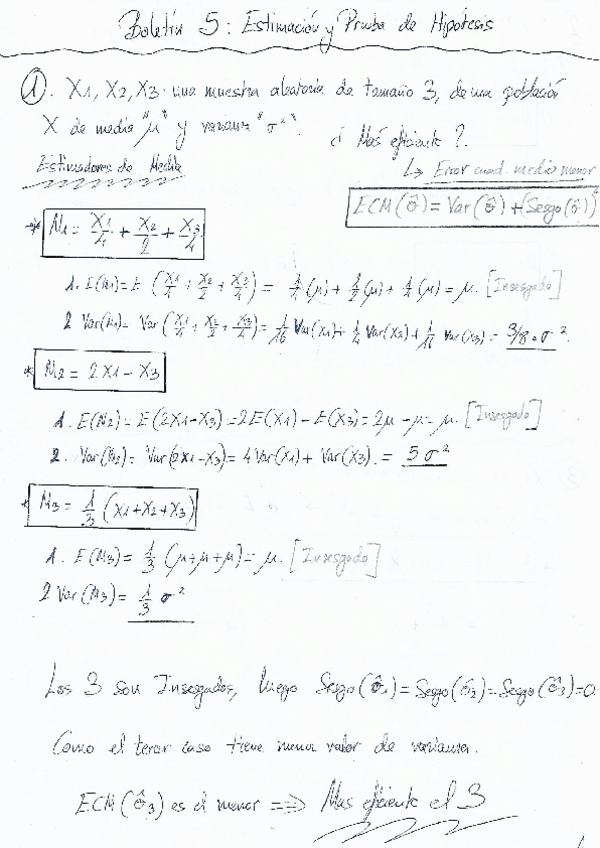 Boletín 5: Estimación y Prueba de Hipotesis
① . X1, X2, X3 una muestra aleatoria de tamaño 3, de una población
X de media "μ" y varianza "σ²". ¿ Más eficiente ?.
Estimadores de Media ↳ Error cuad. medio menor
ECM(σ̂) = Var(σ̂) + (Sesgo(σ̂))²
* M1 = X1/4 + X2/2 + X3/4
1. E(M1) = E (X1/4 + X2/2 + X3/4) = 1/4 (μ) + 1/2 (μ) + 1/4 (μ) = μ. [Insesgado]
2 Var(M1) = Var (X1/4 + X2/2 + X3/4) = 1/16 Var(X1) + 1/4 Var(X2) + 1/16 Var(X3) = 3/8 · σ².
* M2 = 2X1 - X3
1. E(M2) = E(2X1-X3) = 2E(X1) - E(X3) = 2μ - μ = μ. [Insesgado]
2. Var(M2) = Var(2X1-X3) = 4Var(X1) + Var(X3). = 5σ²
* M3 = 1/3 (X1+X2+X3)
1. E(M3) = 1/3 (μ+μ+μ) = μ. [Insesgado]
2 Var(M3) = 1/3 σ²
Los 3 son Insesgados, luego Sesgo(σ̂1) = Sesgo(σ̂2) = Sesgo(σ̂3) = 0.
Como el tercer caso tiene menor valor de varianza.
ECM(σ̂3) es el menor ==> Mas eficiente el 3